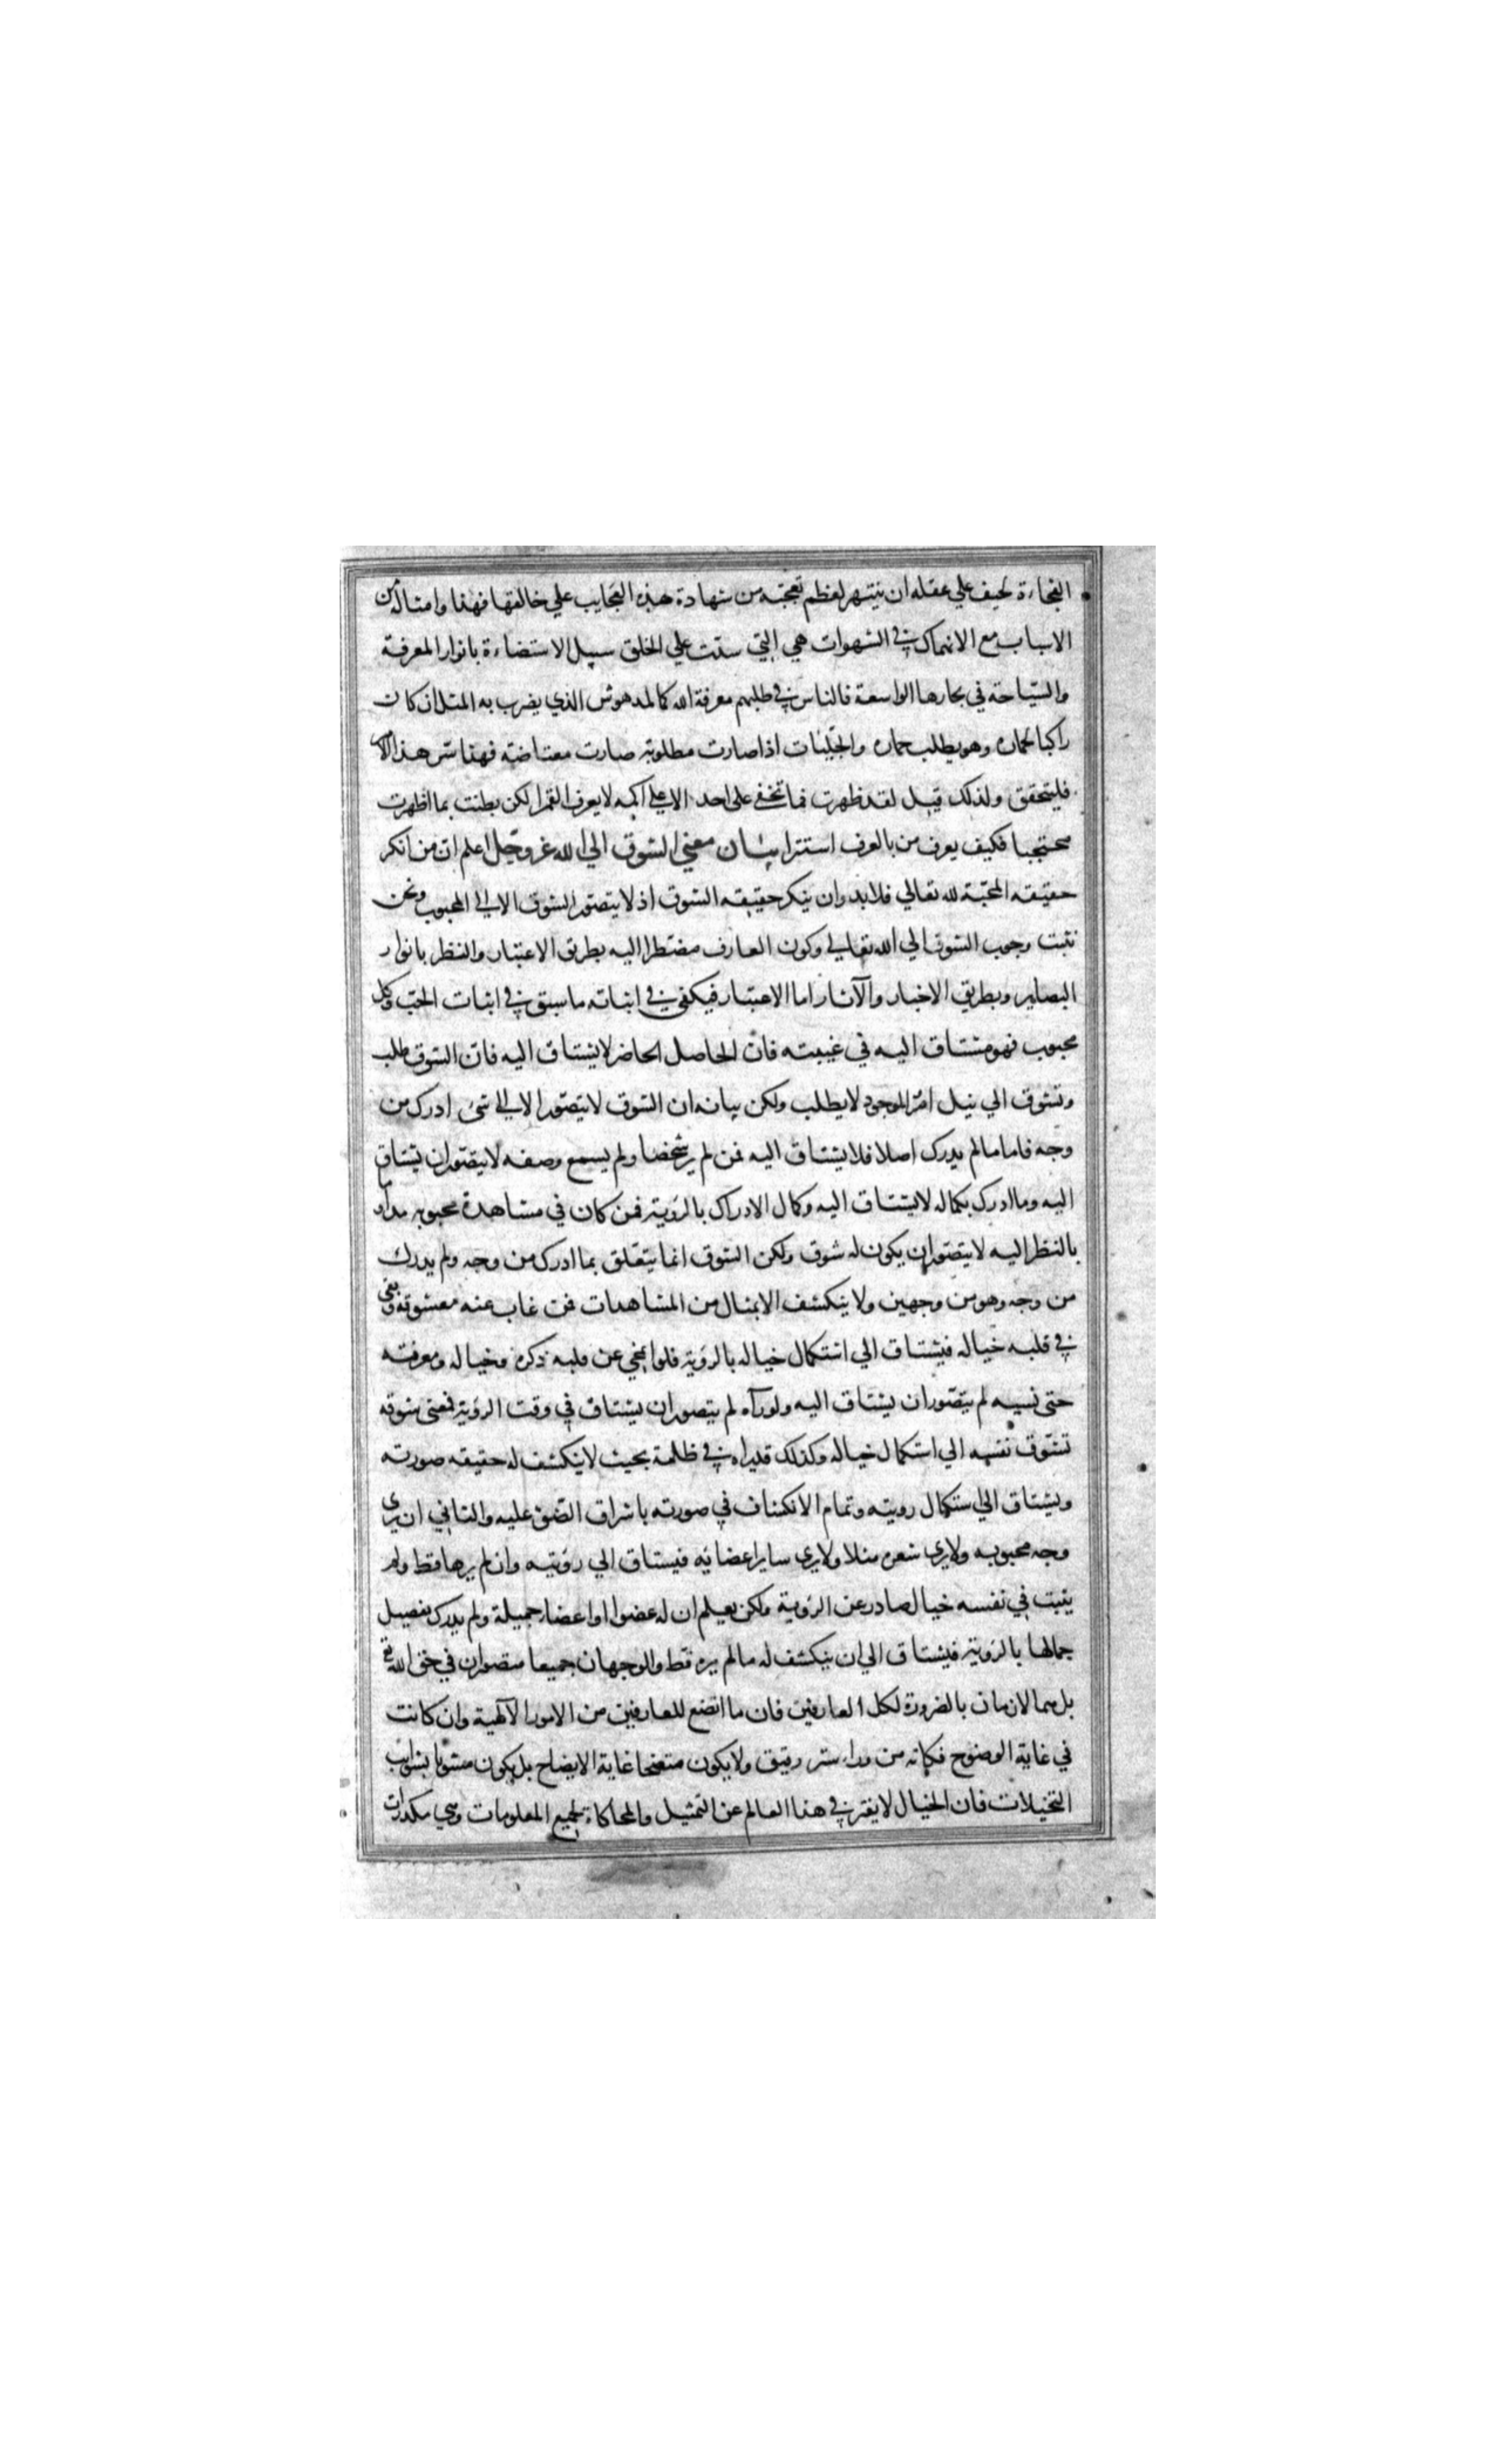 الفجاءة لخيف علي عقله ان ينتهر لعظم تعجبه من شهادة هذه العجايب علي خالقها فهذا وامثاله من
الاسباب مع الانهماك في الشهوات هي التي سدت علي الخلق سبيل الاستضاءة بانوار المعرفة
والسباحة في بحارها الواسعة فالناس في طلبهم معرفة الله كالمدهوش الذي يضرب به المثل اذ كان
راكبا لحماره وهو يطلب حماره والجليات اذا صارت مطلوبة صارت معتاضة فهذا سر هذا الامر
فليتحقق ولذلك قيل لقد ظهرت فما تخفي على احد الا علي اكمه لا يعرف القمرا لكن بطنت بما اظهرت
محتجبا فكيف يعرف من بالعرف استترا بيان معني الشوق الي الله عز وجل اعلم ان من انكر
حقيقة المحبة لله تعالي فلا بد وان ينكر حقيقة الشوق اذ لا يتصور الشوق الا الي المحبوب ونحن
نثبت وجوب الشوق الي الله تعالي وكون العارف مضطرا اليه بطريق الاعتبار والنظر بانوار
البصاير وبطريق الاخبار والآثار اما الاعتبار فيكفي في اثباته ما سبق في اثبات الحب فكل
محبوب فهو مشتاق اليه في غيبته فان الحاصل الحاضر لا يشتاق اليه فان الشوق طلب
وتشوق الي نيل امر الموجود لا يطلب ولكن بيانه ان الشوق لا يتصور الا الي شئ ادرك من
وجه فاما ما لم يدرك اصلا فلا يشتاق اليه فمن لم ير شخصا ولم يسمع وصفه لا يتصور ان يشتاق
اليه وما ادرك بكماله لا يشتاق اليه وكمال الادراك بالرؤية فمن كان في مشاهدة محبوبه مداوما
بالنظر اليه لا يتصور ان يكون له شوق ولكن الشوق انما يتعلق بما ادرك من وجه ولم يدرك
من وجه وهو من وجهين ولا ينكشف الا بمثال من المشاهدات فمن غاب عنه معشوقه وبقي
في قلبه خياله فيشتاق الي استكمال خياله بالرؤية فلو انمحي عن قلبه ذكره وخياله ومعرفته
حتى نسيه لم يتصور ان يشتاق اليه ولو رآه لم يتصور ان يشتاق في وقت الرؤية فمعنى شوقه
تشوق نفسه الي استكمال خياله وكذلك قد يراه في ظلمة بحيث لا ينكشف له حقيقة صورته
ويشتاق الي استكمال رويته وتمام الانكشاف في صورته باشراق الضوء عليه والثاني ان يري
وجه محبوبه ولا يري شعره مثلا ولا يري ساير اعضائه فيشتاق الي رؤيته وان لم يرها قط ولم
يثبت في نفسه خيال صادر عن الرؤية ولكن يعلم ان له عضوا او اعضاء جميلة ولم يدرك تفصيل
جمالها بالرؤية فيشتاق الي ان ينكشف له ما لم يره قط والوجهان جميعا متصوران في حق الله تع
بل هما لازمان بالضرورة لكل العارفين فان ما اتضح للعارفين من الامور الآلهية وان كانت
في غاية الوضوح فكانه من وراء ستر رقيق ولا يكون متضحا غاية الايضاح بل يكون مشوبا بشوايب
التخيلات فان الخيال لا يفتر في هذا العالم عن التمثيل والمحاكاة لجميع المعلومات وهي مكدرات